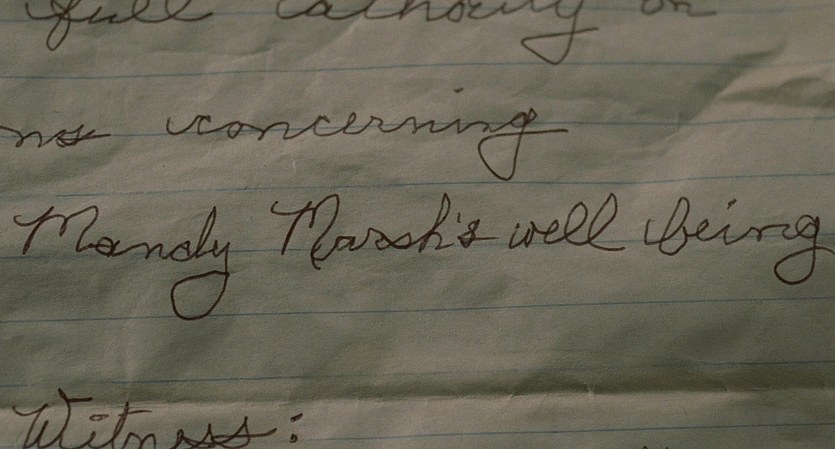 full cathority on
ns concerning
Mandy Marsh's well being
Witness: